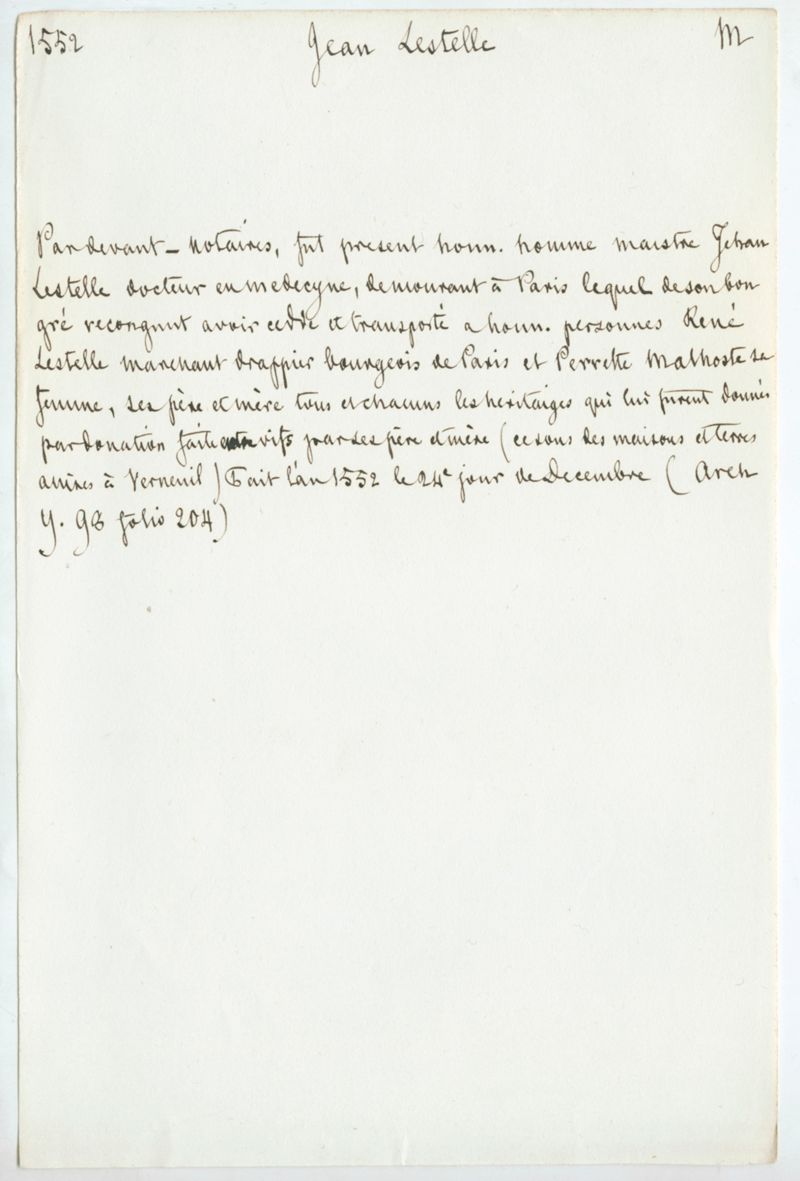 1552 Jean Lestelle M
Par devant - notaires, fut present honn. homme maistre Jehan
Lestelle docteur en medecyne, demourant à Paris lequel de son bon
gré recongnut avoir ceddé et transporté a honn. personnes René
Lestelle marchant drappier bourgeois de Paris et Perrette Malhoste sa
femme, ses père et mère tous et chacuns les heritaiges qui lui furent donnés
par donation faite entre vifs par ses père et mère (ce sons des maisons et terres
assises à Verneuil) Fait l'an 1552 le 24e jour de Decembre (Arch
Y. 98 folio 204)